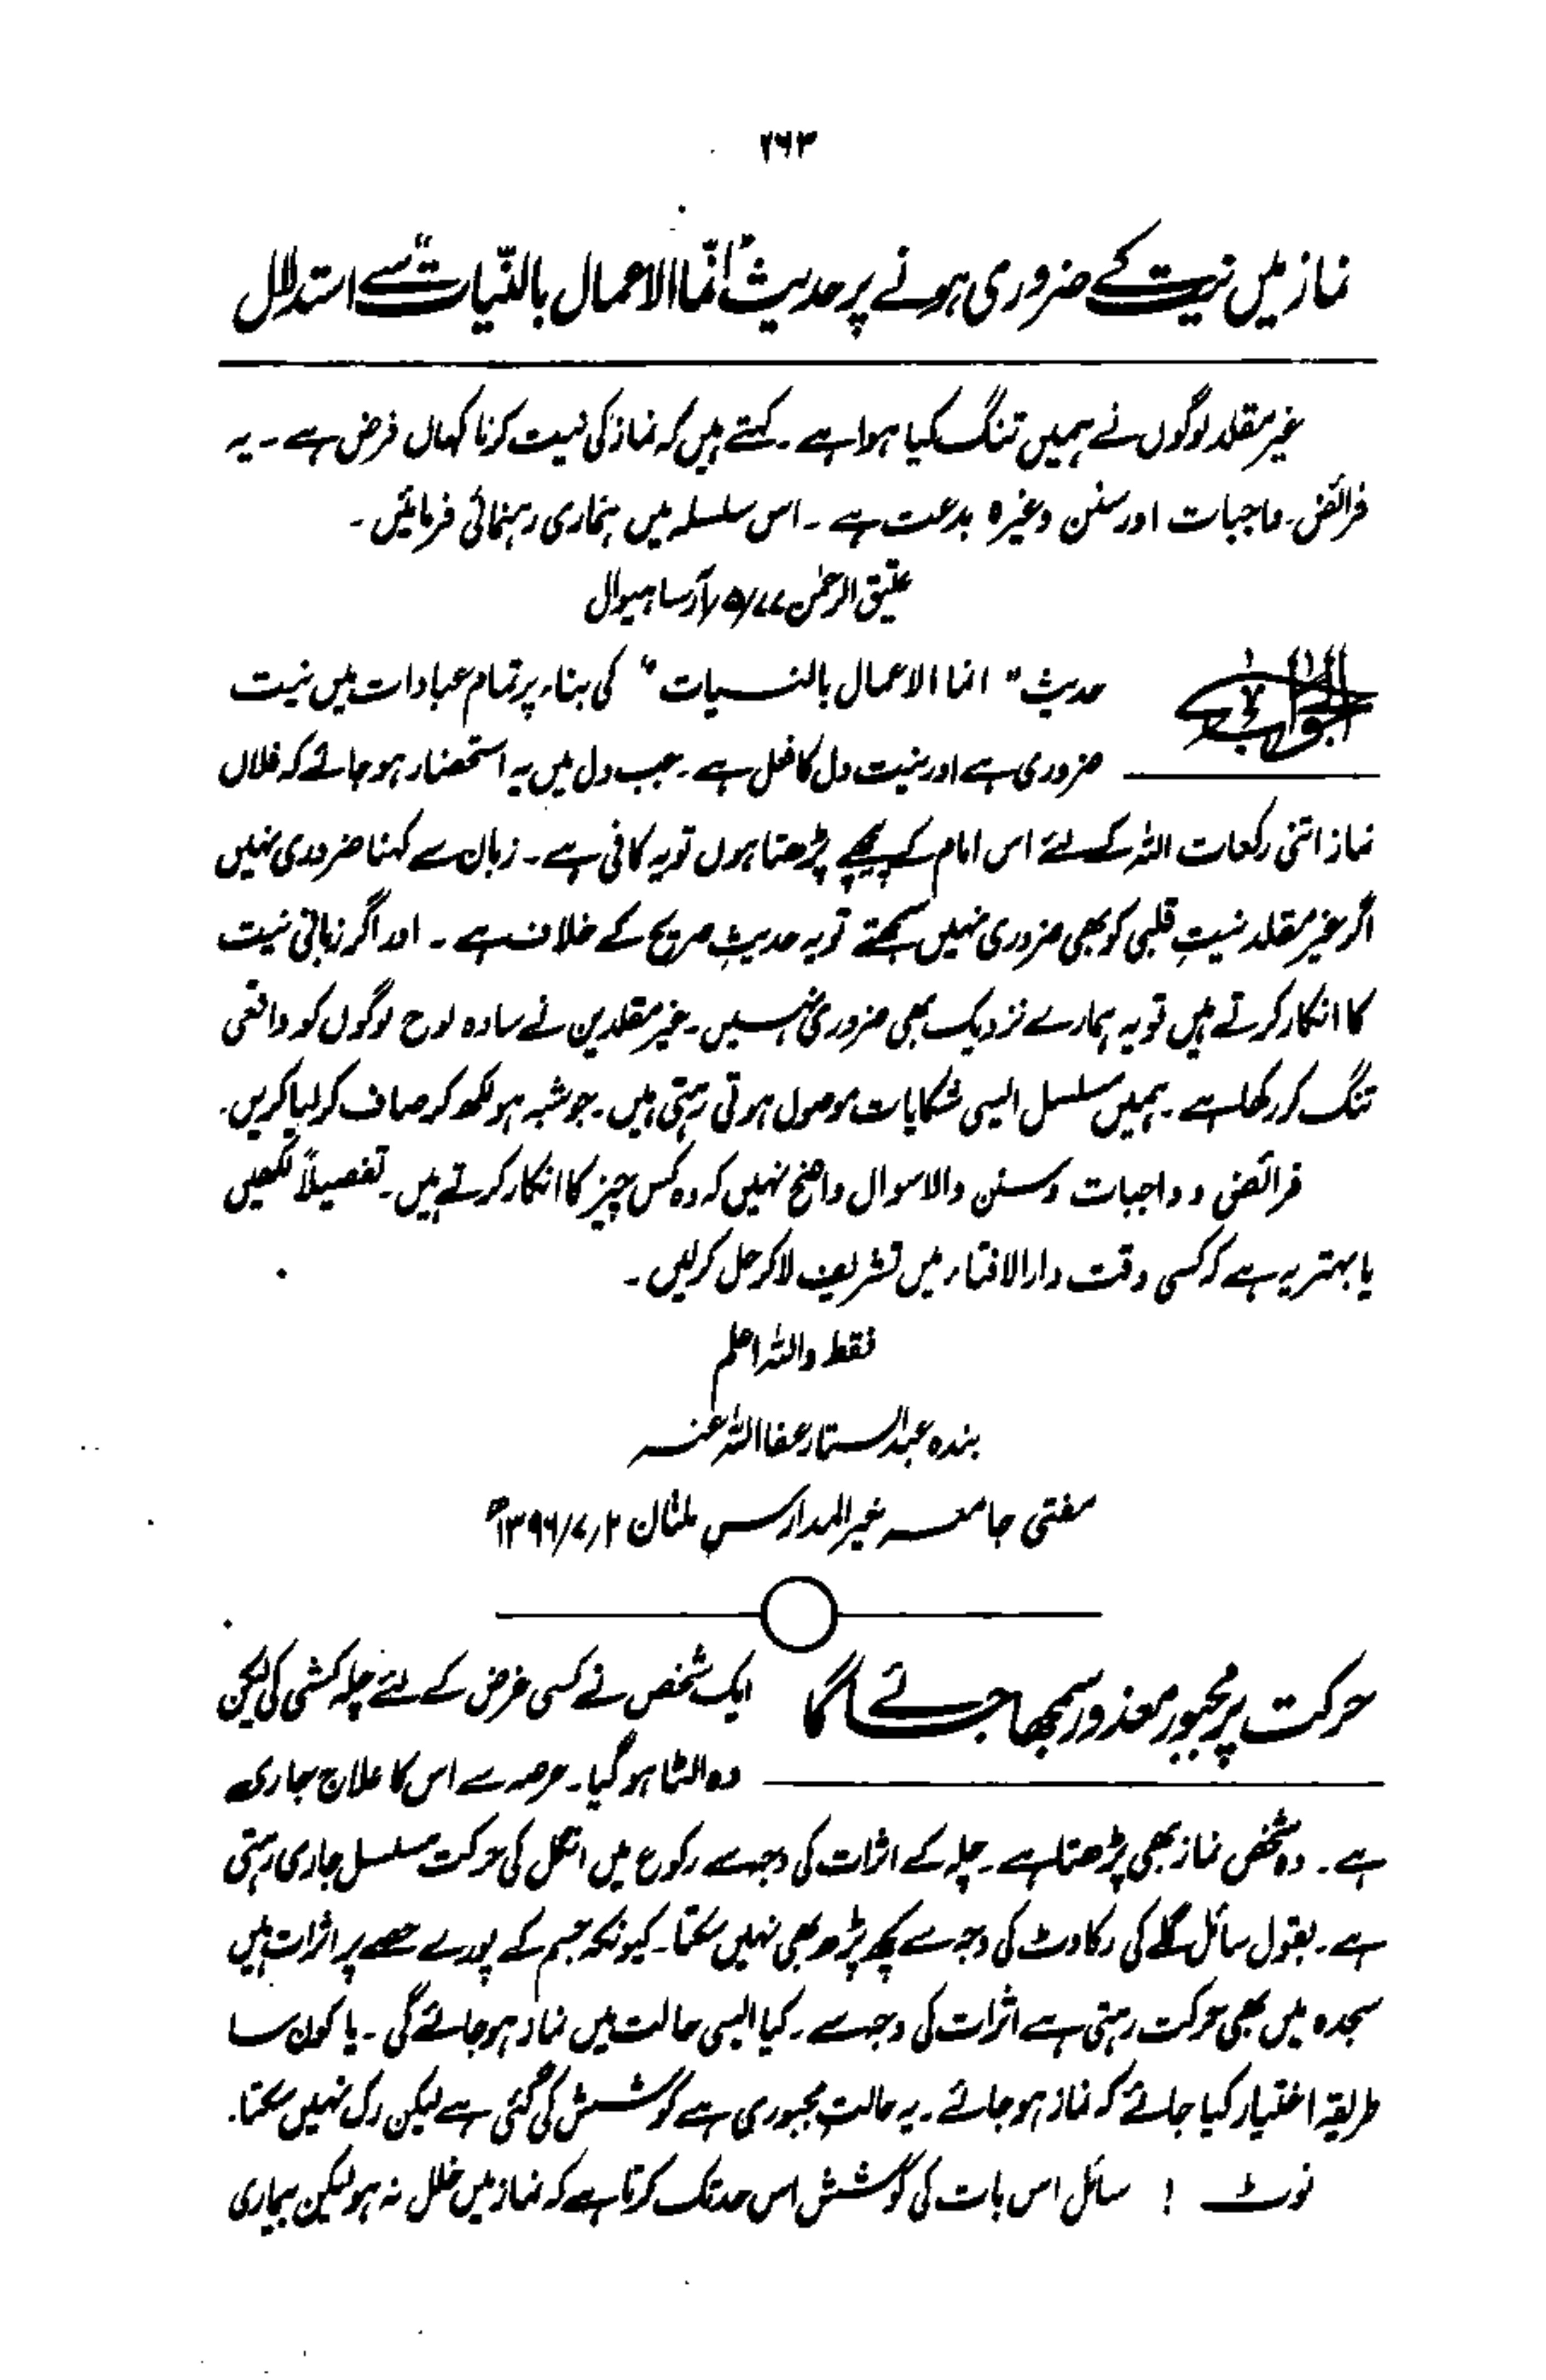 ۲۶۳
نماز میں نیت کے ضروری ہونے پر حدیث "انّما الاعمال بالنّیات" سے استدلال
غیر مقلد لوگوں نے ہمیں تنگ کیا ہوا ہے ۔ کہتے ہیں کہ نماز کی نیت کرنا کہاں فرض ہے ۔ یہ
فرائض ۔ واجبات اور سنن وغیرہ بدعت ہے ۔ اس سلسلہ میں ہماری رہنمائی فرمائیں ۔
عتیق الرحمٰن ساہیوال
الجواب
حدیث " انما الاعمال بالنسیات " کی بناء پر تمام عبادات میں نیت
ضروری ہے اور نیت دل کا فعل ہے ۔ جب دل میں یہ استحضار ہو جائے کہ فلاں
نماز اتنی رکعات اللہ کے لئے اس امام کے پیچھے پڑھتا ہوں تو یہ کافی ہے ۔ زبان سے کہنا ضروری نہیں
اگر غیر مقلد نیتِ قلبی کو بھی ضروری نہیں سمجھتے تو یہ حدیثِ صریح کے خلاف ہے ۔ اور اگر زبانی نیت
کا انکار کرتے ہیں تو یہ ہمارے نزدیک بھی ضروری نہیں ۔ غیر مقلدین نے سادہ لوح لوگوں کو واقعی
تنگ کر رکھا ہے ۔ ہمیں مسلسل ایسی شکایات موصول ہوتی رہتی ہیں ۔ جو شبہ ہو لکھ کر صاف کر لیا کریں ۔
فرائض و واجبات و سنن والا سوال واضح نہیں کہ وہ کس چیز کا انکار کرتے ہیں ۔ تفصیلاً لکھیں
یا بہتر یہ ہے کہ کسی وقت دارالافتاء میں تشریف لا کر حل کر لیں ۔
فقط واللہ اعلم
بندہ عبدالستار عفا اللہ عنہ
مفتی جامعہ خیر المدارس ملتان ۲/۷/۱۳۹۶ھ
حرکت پر مجبور معذور سمجھا جائے گا
ایک شخص نے کسی غرض کے لئے چلہ کشی کی لیکن
وہ الٹا ہو گیا ۔ عرصہ سے اس کا علاج جاری
ہے ۔ وہ شخص نماز بھی پڑھتا ہے ۔ چلہ کے اثرات کی وجہ سے رکوع میں انگلی کی حرکت مسلسل جاری رہتی
ہے ۔ بقول سائل گلے کی رکاوٹ کی وجہ سے کچھ پڑھ بھی نہیں سکتا ۔ کیونکہ جسم کے پورے حصے پر اثرات ہیں
سجدہ میں بھی حرکت رہتی ہے اثرات کی وجہ سے ۔ کیا ایسی حالت میں نماز ہو جائے گی ۔ یا کون سا
طریقہ اختیار کیا جائے کہ نماز ہو جائے ۔ یہ حالتِ مجبوری ہے کوشش کی گئی ہے لیکن رک نہیں سکتا ۔
نوٹ ! سائل اس بات کی کوشش اس حد تک کرتا ہے کہ نماز میں خلل نہ ہو لیکن بیماری